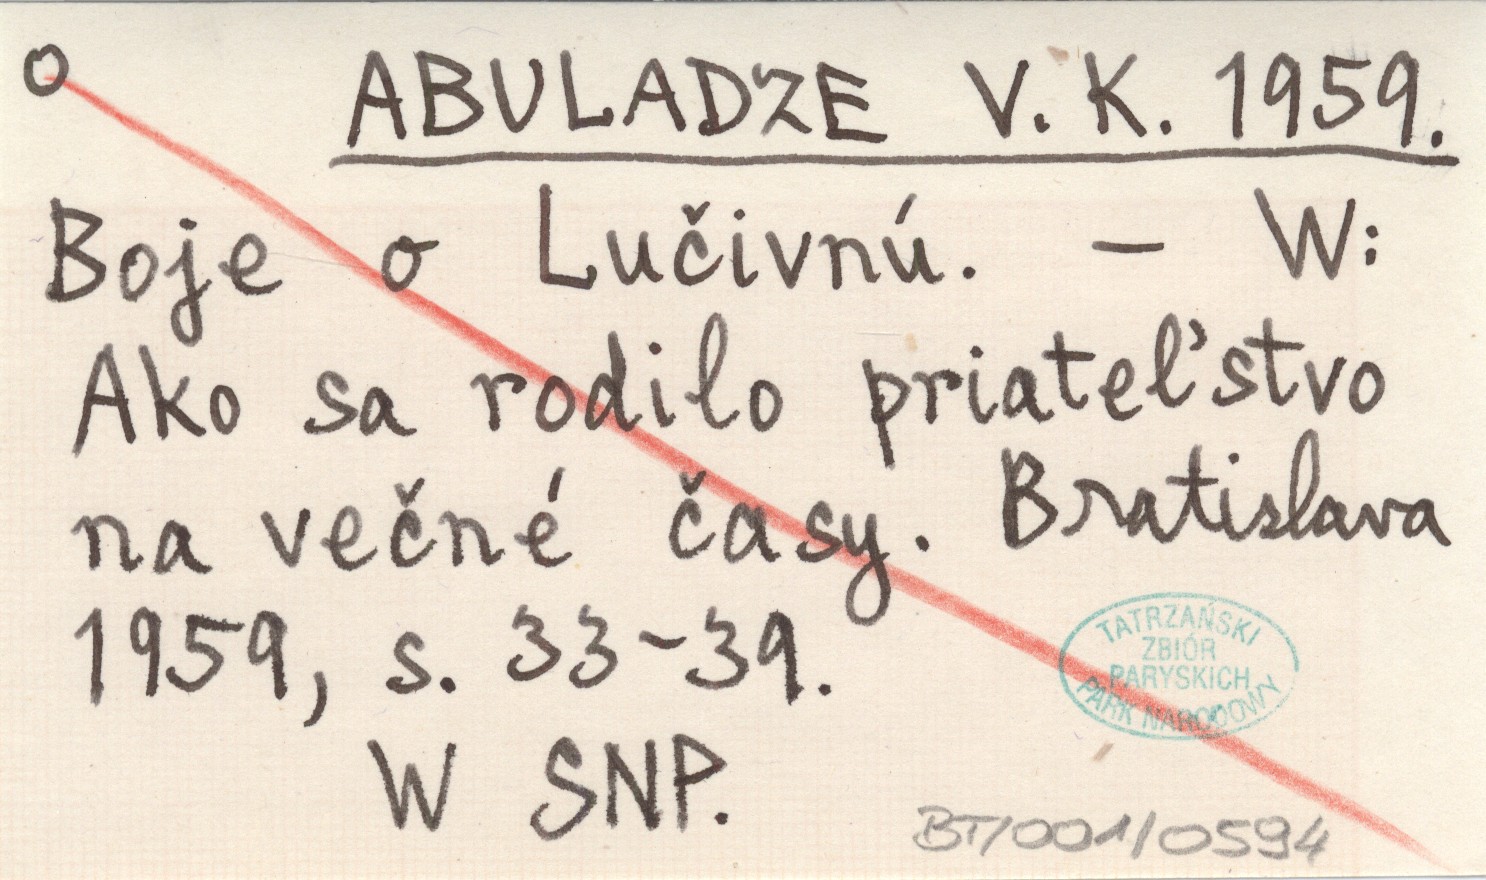 o ABULADZE V. K. 1959.
Boje o Lučivnú. – W:
Ako sa rodilo priateľstvo
na večné časy. Bratislava
1959, s. 33–39.
TATRZAŃSKI
ZBIÓR
PARYSKICH
PARK NARODOWY
W SNP.
BT/001/0594